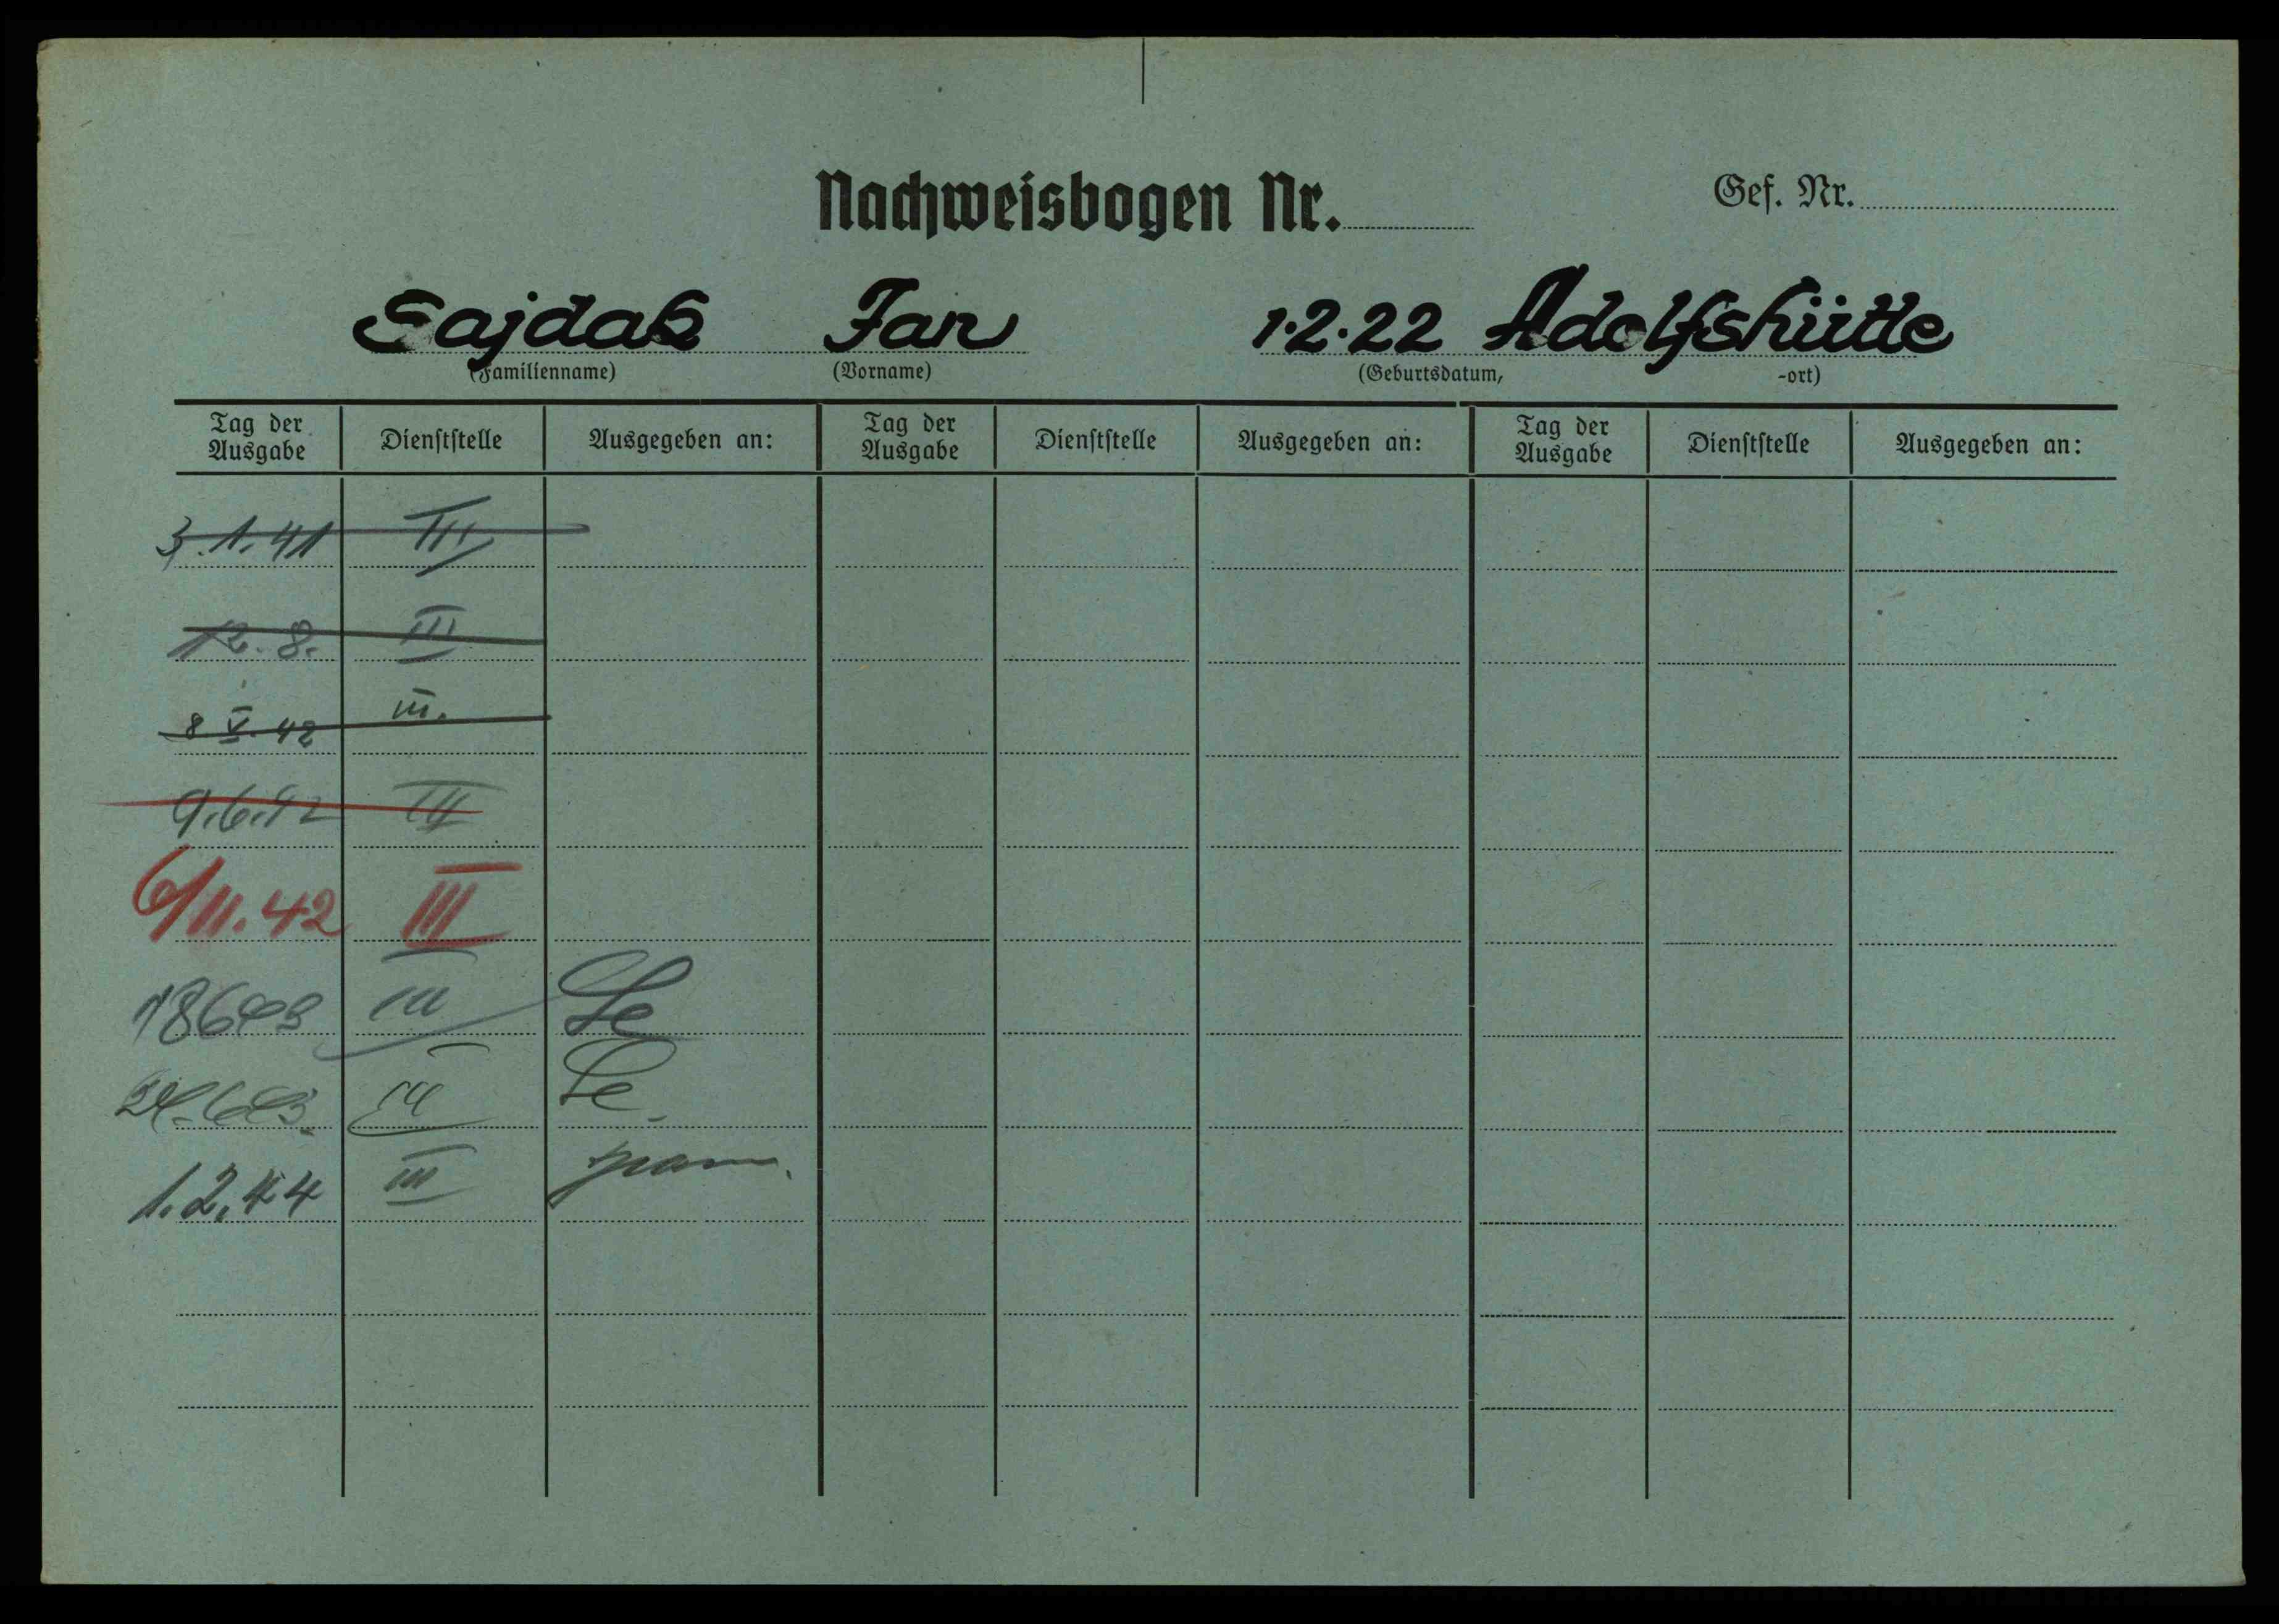 Nachweisbogen Nr.
Gef. Nr.
Sajdak Jan 1.2.22 Adolfshütte
(Familienname) (Vorname) (Geburtsdatum, -ort)
Tag der Ausgabe Dienststelle Ausgegeben an: Tag der Ausgabe Dienststelle Ausgegeben an: Tag der Ausgabe Dienststelle Ausgegeben an:
3.1.41 III
12.8. III
8 V. 42 III.
9.6.42 III
6/11.42 III
18643 III Le
24.643. III Le.
1.2.44 III